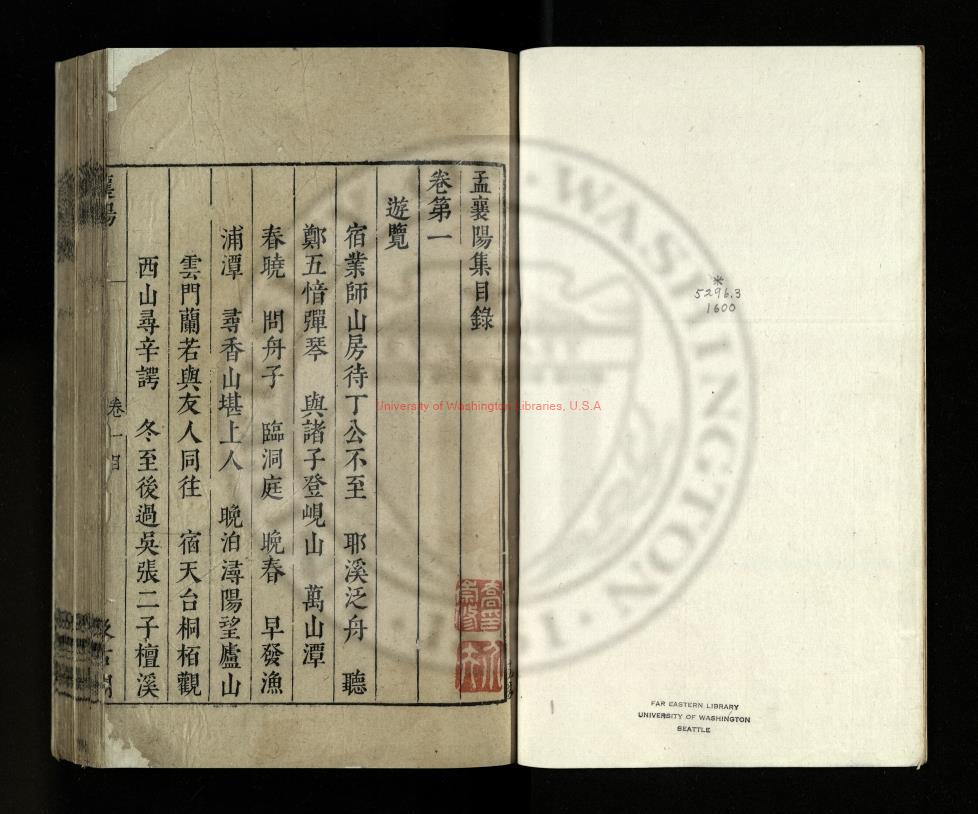 孟襄陽集目錄
卷第一
遊覽
宿業師山房待丁公不至 耶溪泛舟 聽
鄭五愔彈琴 與諸子登峴山 萬山潭
春曉 問舟子 臨洞庭 晚春 早發漁
浦潭 尋香山堪上人 晚泊潯陽望廬山
雲門蘭若與友人同往 宿天台桐栢觀
西山尋辛諤 冬至後過吳張二子檀溪
襄陽
卷一目
*
5296.3
1600
University of Washington Libraries, U.S.A
WASHINGTON
FAR EASTERN LIBRARY
UNIVERSITY OF WASHINGTON
SEATTLE